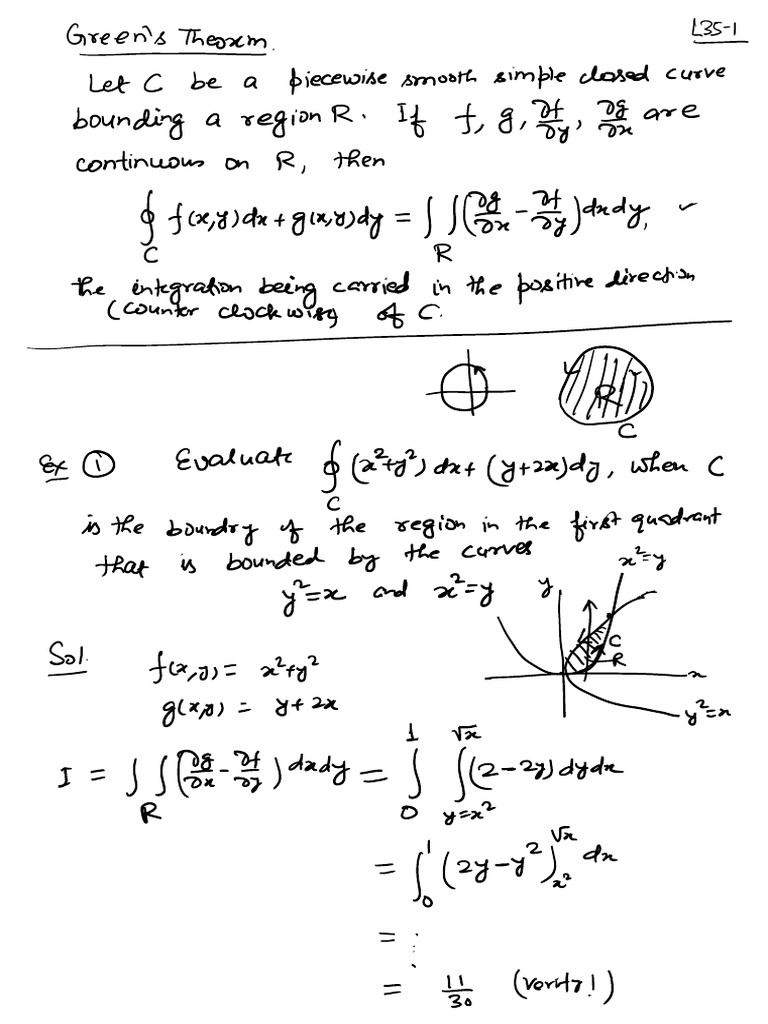 Green's Theorem. L35-1
Let C be a piecewise smooth simple closed curve
bounding a region R. If f, g, ∂f/∂y, ∂g/∂x are
continuous on R, then
∮_C f(x,y)dx + g(x,y)dy = ∫∫_R (∂g/∂x - ∂f/∂y) dxdy, ✓
the integration being carried in the positive direction
(counter clockwise) of C.
R
C
Ex ① Evaluate ∮_C (x²+y²) dx + (y+2x)dy, when C
is the boundry of the region in the first quadrant
that is bounded by the curves
y²=x and x²=y
x²=y
y
C
R
x
y²=x
Sol.
f(x,y) = x²+y²
g(x,y) = y+2x
I = ∫∫_R (∂g/∂x - ∂f/∂y) dxdy = ∫_0^1 ∫_{y=x²}^{√x} (2-2y) dy dx
= ∫_0^1 (2y-y²)_{x²}^{√x} dx
= ⋮
= 11/30 (verify!)